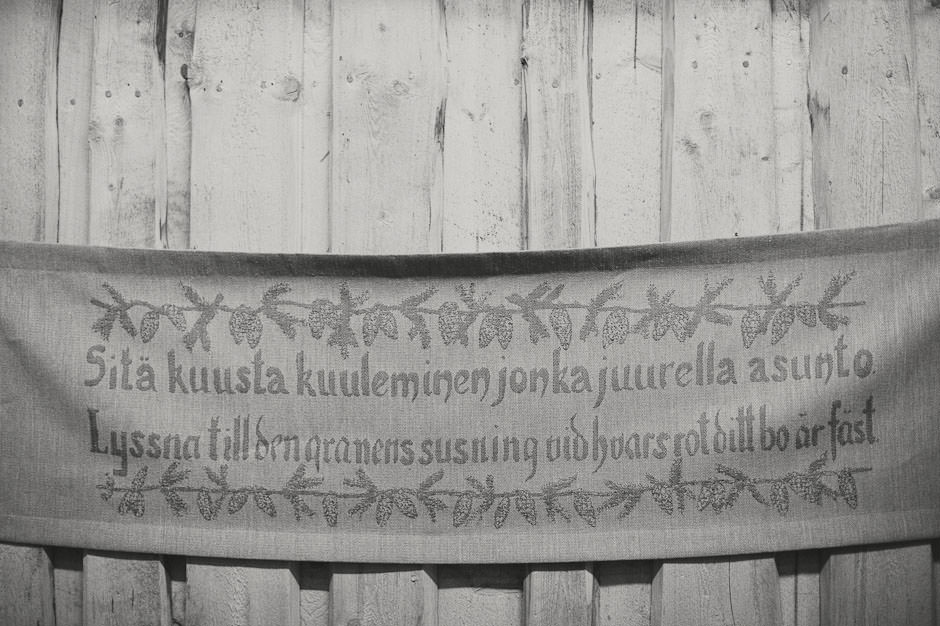 Sitä kuusta kuuleminen jonka juurella asunto.
Lyssna till den granens susning vid hvars rot ditt bo är fäst.